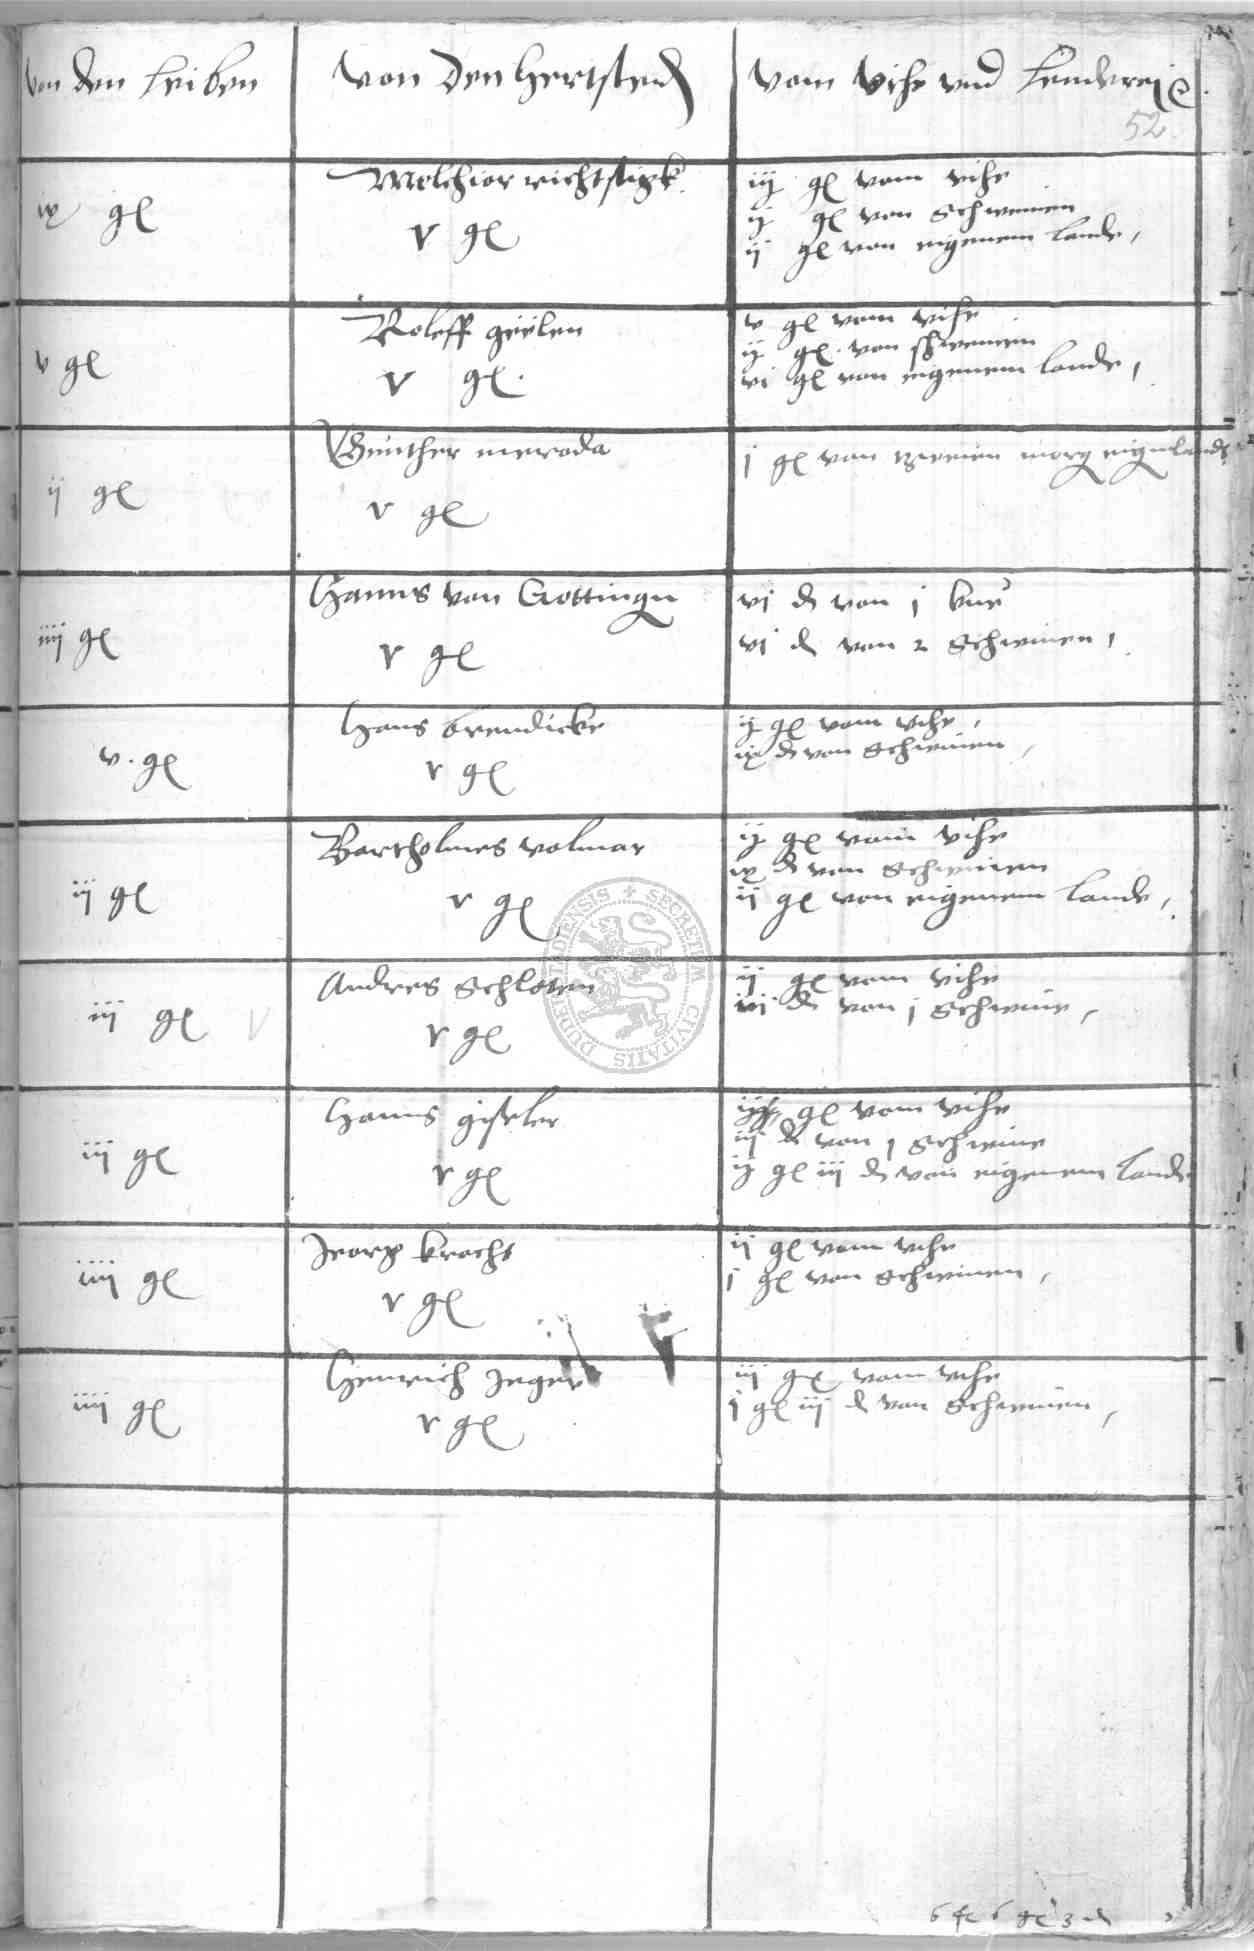 von den leiben von den hertsted vom vihe vnd lenderey
52
Melchior richtstigk
ix gl
v gl
iij gl vom vihe
ij gl von schweinen
ij gl von eigenem lande,
Roleff geÿlen
v gl
v gl.
v gl vom vihe
ij gl. von schweinen
vi gl von eigenem lande,
Günther meroda
ij gl
v gl
j gl von zweien morg eigenlands
Hanns von Gottingn
iiij gl
v gl
vi d von j kue
vi d von 2 schweinen,
Hans brendicke
v. gl
v gl
ij gl vom vihe,
ix d von schweinen,
Bartholmes volmar
ij gl
v gl
ij gl vom vihe
ix d von schweinen
ij gl von eigenem lande,
Andres schloten
iij gl
v gl
ij gl vom vihe
vi d von j schweine,
Hanns giseler
iij gl
v gl
gl vom vihe
iij d von j schweine
ij gl iij d von eigenem lande
Jeorg kracht
iiij gl
v gl
ij gl vom vihe
j gl von schweinen,
Henrich Jeger
iiij gl
v gl
iij gl vom vihe
j gl iij d von schweinen,
SECRETUM CIVITATIS DUDERSTADIENSIS
6 6 gl 3 d